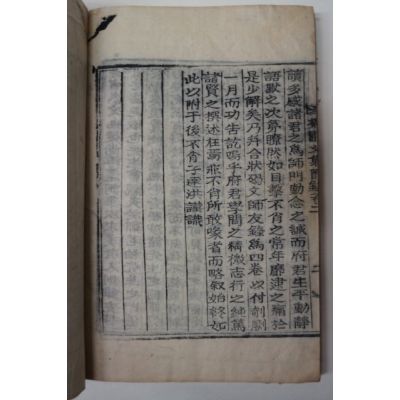 讀多感諸君之爲師門勤念之誠而府君生平動靜
語默之次第瞭然如目擊不肖之常年靡逮之痛於
是少解矣乃幷合狀碣文師友錄爲四卷以付剞劂
一月而功告訖嗚乎府君學問之精微志行之純篤
諸賢之撰述在焉非不肖所敢喙者而略叙始終如
此以附于後不肖子 洪謹識